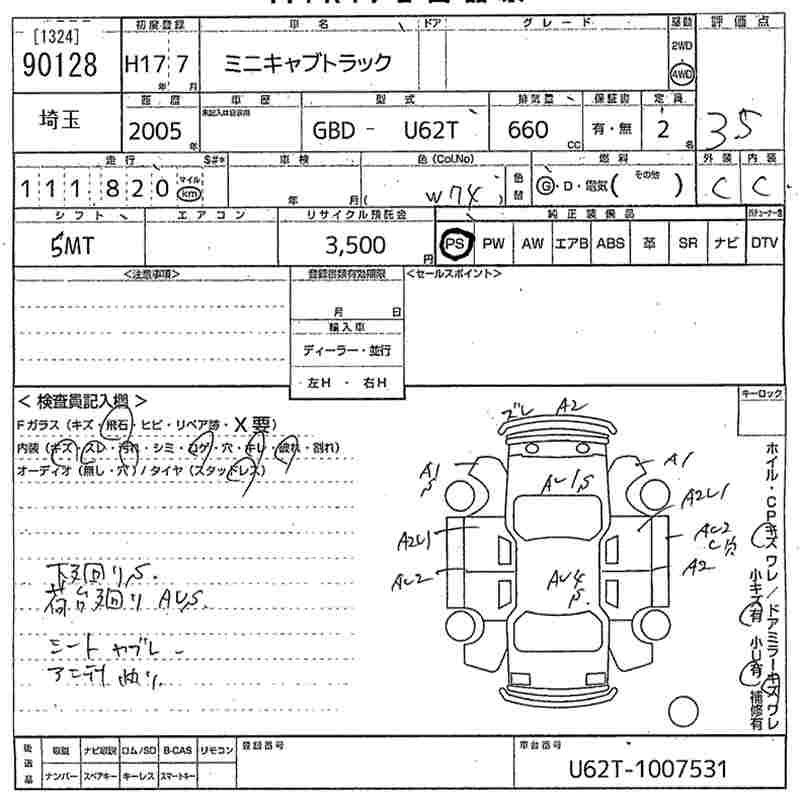 [1324]
90128
初度登録
H17 7
年 月
車名
ミニキャブトラック
ドア
グレード
駆動
2WD
4WD
評価点
3.5
埼玉
距歴
2005
年
車歴
型式
GBD - U62T
排気量
660
CC
保証書
有・無
定員
2
名
外装
C
内装
C
走行
111820
マイル
km
S#*
車検
年 月
色(Col.No)
( W74 )
色替
燃料
G・D・電気( その他 )
シフト
5MT
エアコン
リサイクル預託金
3,500
円
純正装備品
PS PW AW エアB ABS 革 SR ナビ DTV
<注意事項>
登録書類有効期限
月 日
輸入車
ディーラー・並行
左H ・ 右H
<セールスポイント>
キーロック
<検査員記入欄>
Fガラス(キズ・飛石・ヒビ・リペア跡・X要)
内装(キズ・スレ・汚れ・シミ・コゲ・穴・キレ・破れ・割れ)
オーディオ(無し・穴)/タイヤ(スタッドレス)
下廻りS.
荷台廻り AUS.
シート ヤブレ
ズレ A2
A1 S
A1
AU1,S
A2U1
A2U1
AU2
AU4 S.
AU2
A2
ホイル・CPキズワレ/ドアミラーキズワレ
小キズ有 小U有 補修有
後送品
取説 ナビ取説 ロム/SD B-CAS リモコン
ナンバー スペアキー キーレス スマートキー
登録番号
車台番号
U62T-1007531